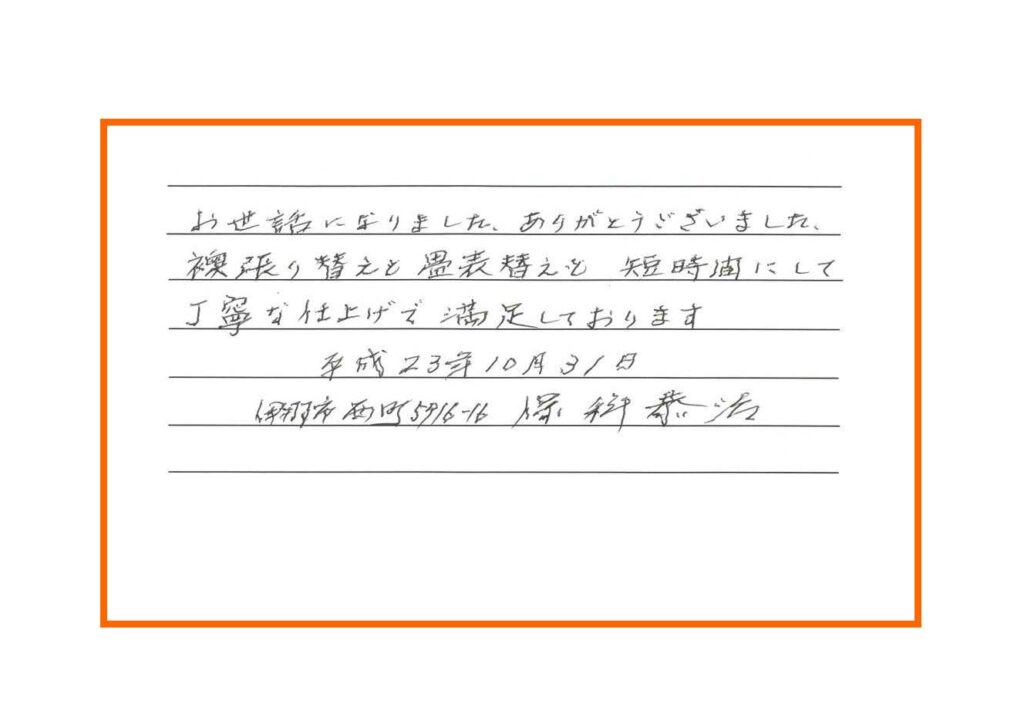 お世話になりました、ありがとうございました、
襖張り替えと畳表替えを 短時間にして
丁寧な仕上げで満足しております
平成23年10月31日
伊那市西町5916-16 保科恭治